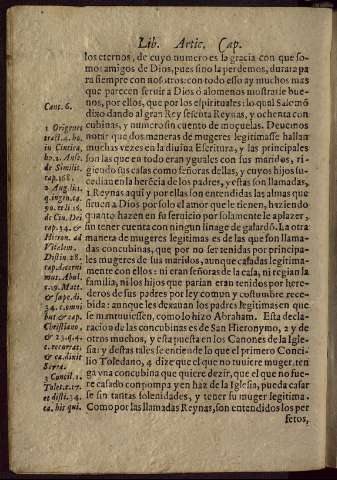 Lib. Artic. Cap.
los eternos, de cuyo numero es la gracia con que so-
mos amigos de Dios, pues sino la perdemos, durara pa
ra siempre con nosotros: con todo esso ay muchos mas
que parecen seruir a Dios ó alomenos mostrarse bue-
nos, por ellos, que por los espirituales: lo qual Salomõ
dixo dando al gran Rey sesenta Reynas, y ochenta con
cubinas, y numero sin cuento de moçuelas. Deuemos
notar que dos maneras de mugeres legitimas se hallan
muchas vezes en la diuina Escritura, y las principales
son las que en todo eran yguales con sus maridos, ri-
giendo sus casas como señoras dellas, y cuyos hijos su-
cedian en la herẽcia de los padres, y estas son llamadas,
Reynas aqui y por ellas son entendidas las almas que
siruen a Dios por solo el amor que le tienen, haziendo
quanto hazen en su seruicio por solamente aplazer,
sin tener cuenta con ningun linage de galardõ. La otra
manera de mugeres legitimas es de las que son llama-
das concubinas, que por no ser tenidas por principa-
les mugeres de sus maridos, aunque casadas legitima-
mente con ellos: ni eran señoras de la casa, ni regian la
familia, ni los hijos que parian eran tenidos por here-
deros de sus padres por ley comun y costumbre rece-
bida: aunque les deuan los padres legitimas en que
se mantuuiessen, como lo hizo Abraham. Esta decla-
racion de las concubinas es de San Hieronymo, 2 y de
otros muchos, y esta puesta en los Canones de la Igle-
sia: y destas tales se entiende lo que el primero Conci-
lio Toledano, 4 dize que el que no tuuiere muger, ten
ga vna concubina que quiere dezir, que el que no fue-
re casado con pompa y en haz de la Iglesia, pueda casar
se sin tantas solenidades, y tener su muger legitima.
Como por las llamadas Reynas, son entendidos los per
fetos,
Cant. 6.
1 Origenes
tract. 4. ho.
in Cantica,
ho. 2. Anse.
de Similit.
cap. 168.
2 Aug. li.
q. in gen. ca.
90. &
de Ciu. Dei
cap. 34. &
Hieron. ad
Vitalem.
Distin. 28.
cap.
mus. Abul.
c. 19. Matt.
& supe. di.
34. c. omni
but & cap.
Christiano,
& 23. q. 4.
c. recurrat.
& ca. dixit
Serra.
3 Concil. 1.
Tolet. c. 17.
et disti. 34.
ca. his qui.